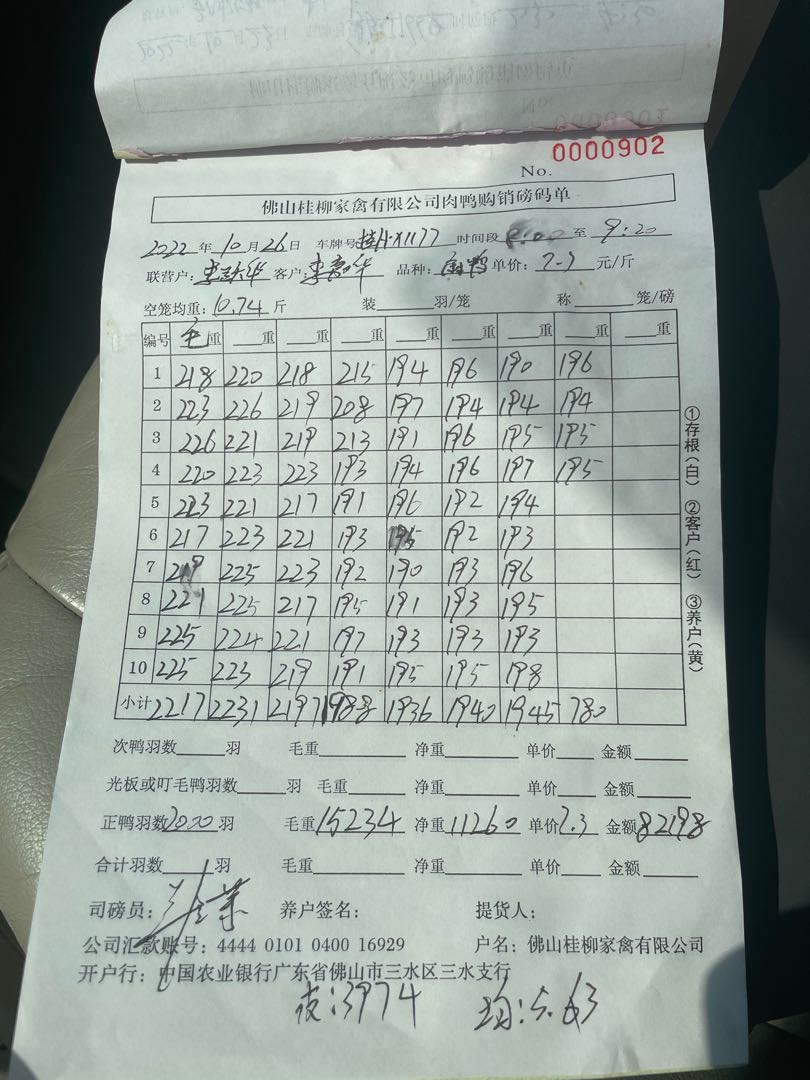 No. 0000902
佛山桂柳家禽有限公司肉鸭购销磅码单
2022 年 10 月 26 日 车牌号 X1177 时间段 8:00 至 9:20
联营户: 客户: 李 华 品种: 鸭 单价: 元/斤
空笼均重: 10.74 斤 装 羽/笼 称 笼/磅
编号 毛重 重 重 重 重 重 重 重 重
1 218 220 218 215 194 196 190 196
2 223 226 219 208 197 194 194 194
3 226 221 219 213 191 196 195 195
4 220 223 223 193 194 196 197 195
5 223 221 217 191 196 192 194
6 217 223 221 193 195 192 193
7 219 225 223 192 190 193 196
8 221 225 217 195 191 193 195
9 225 224 221 197 193 193 193
10 225 223 219 191 195 195 198
小计 2217 2231 2197 1988 1936 1940 1945 780
①存根(白) ②客户(红) ③养户(黄)
次鸭羽数 羽 毛重 净重 单价 金额
光板或叮毛鸭羽数 羽 毛重 净重 单价 金额
正鸭羽数 2000 羽 毛重 15234 净重 11260 单价 7.3 金额 82198
合计羽数 羽 毛重 净重 单价 金额
司磅员: 养户签名: 提货人:
公司汇款账号: 4444 0101 0400 16929 户名: 佛山桂柳家禽有限公司
开户行: 中国农业银行广东省佛山市三水区三水支行
皮:3974 均:5.63